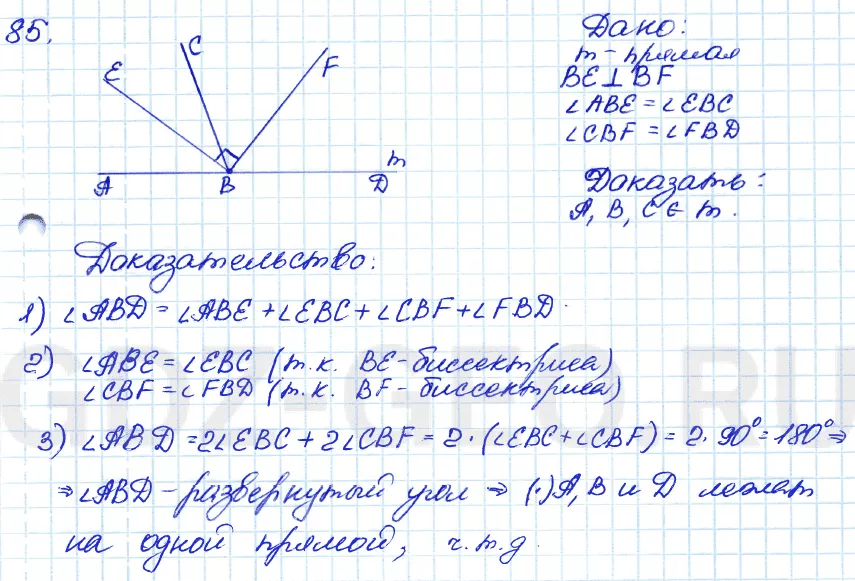 85.
E
C
F
A
B
D
m
Дано:
m - прямая
BE ⊥ BF
∠ABE = ∠EBC
∠CBF = ∠FBD
Доказать:
A, B, C ∈ m.
Доказательство:
1) ∠ABD = ∠ABE + ∠EBC + ∠CBF + ∠FBD.
2) ∠ABE = ∠EBC (т.к. BE - биссектриса)
∠CBF = ∠FBD (т.к. BF - биссектриса)
3) ∠ABD = 2∠EBC + 2∠CBF = 2·(∠EBC + ∠CBF) = 2·90° = 180° ⇒
⇒ ∠ABD - развернутый угол ⇒ (·) A, B и D лежат
на одной прямой, ч.т.д.